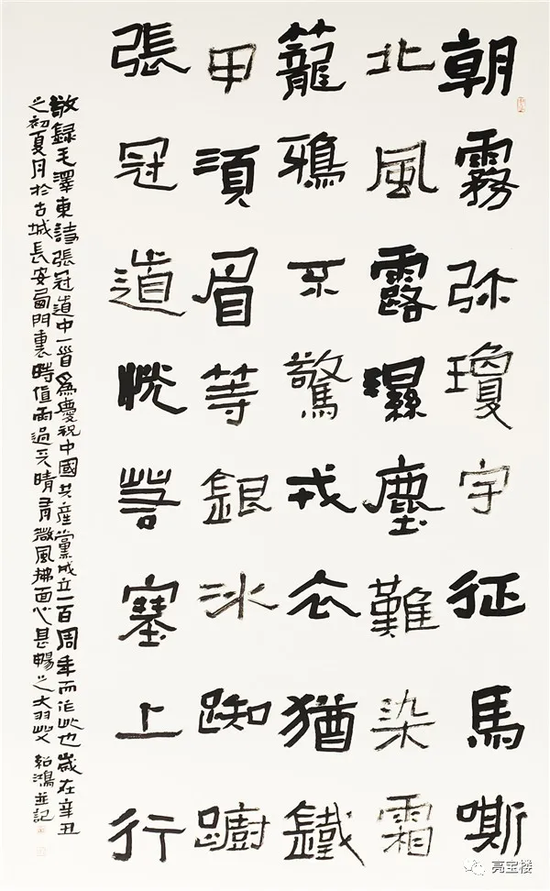 朝霧弥瓊宇征馬嘶
北風露濕塵難染霜
籠鴉不驚戎衣猶鐵
甲須眉等銀冰踟躕
張冠道恍若塞上行
敬録毛澤東詩張冠道中一首為慶祝中國共産黨成立一百周年而作此也歲在辛丑
之初夏月於古城長安南門裏時值雨過天晴微風拂面心甚暢之紹鴻並記
亮宝楼